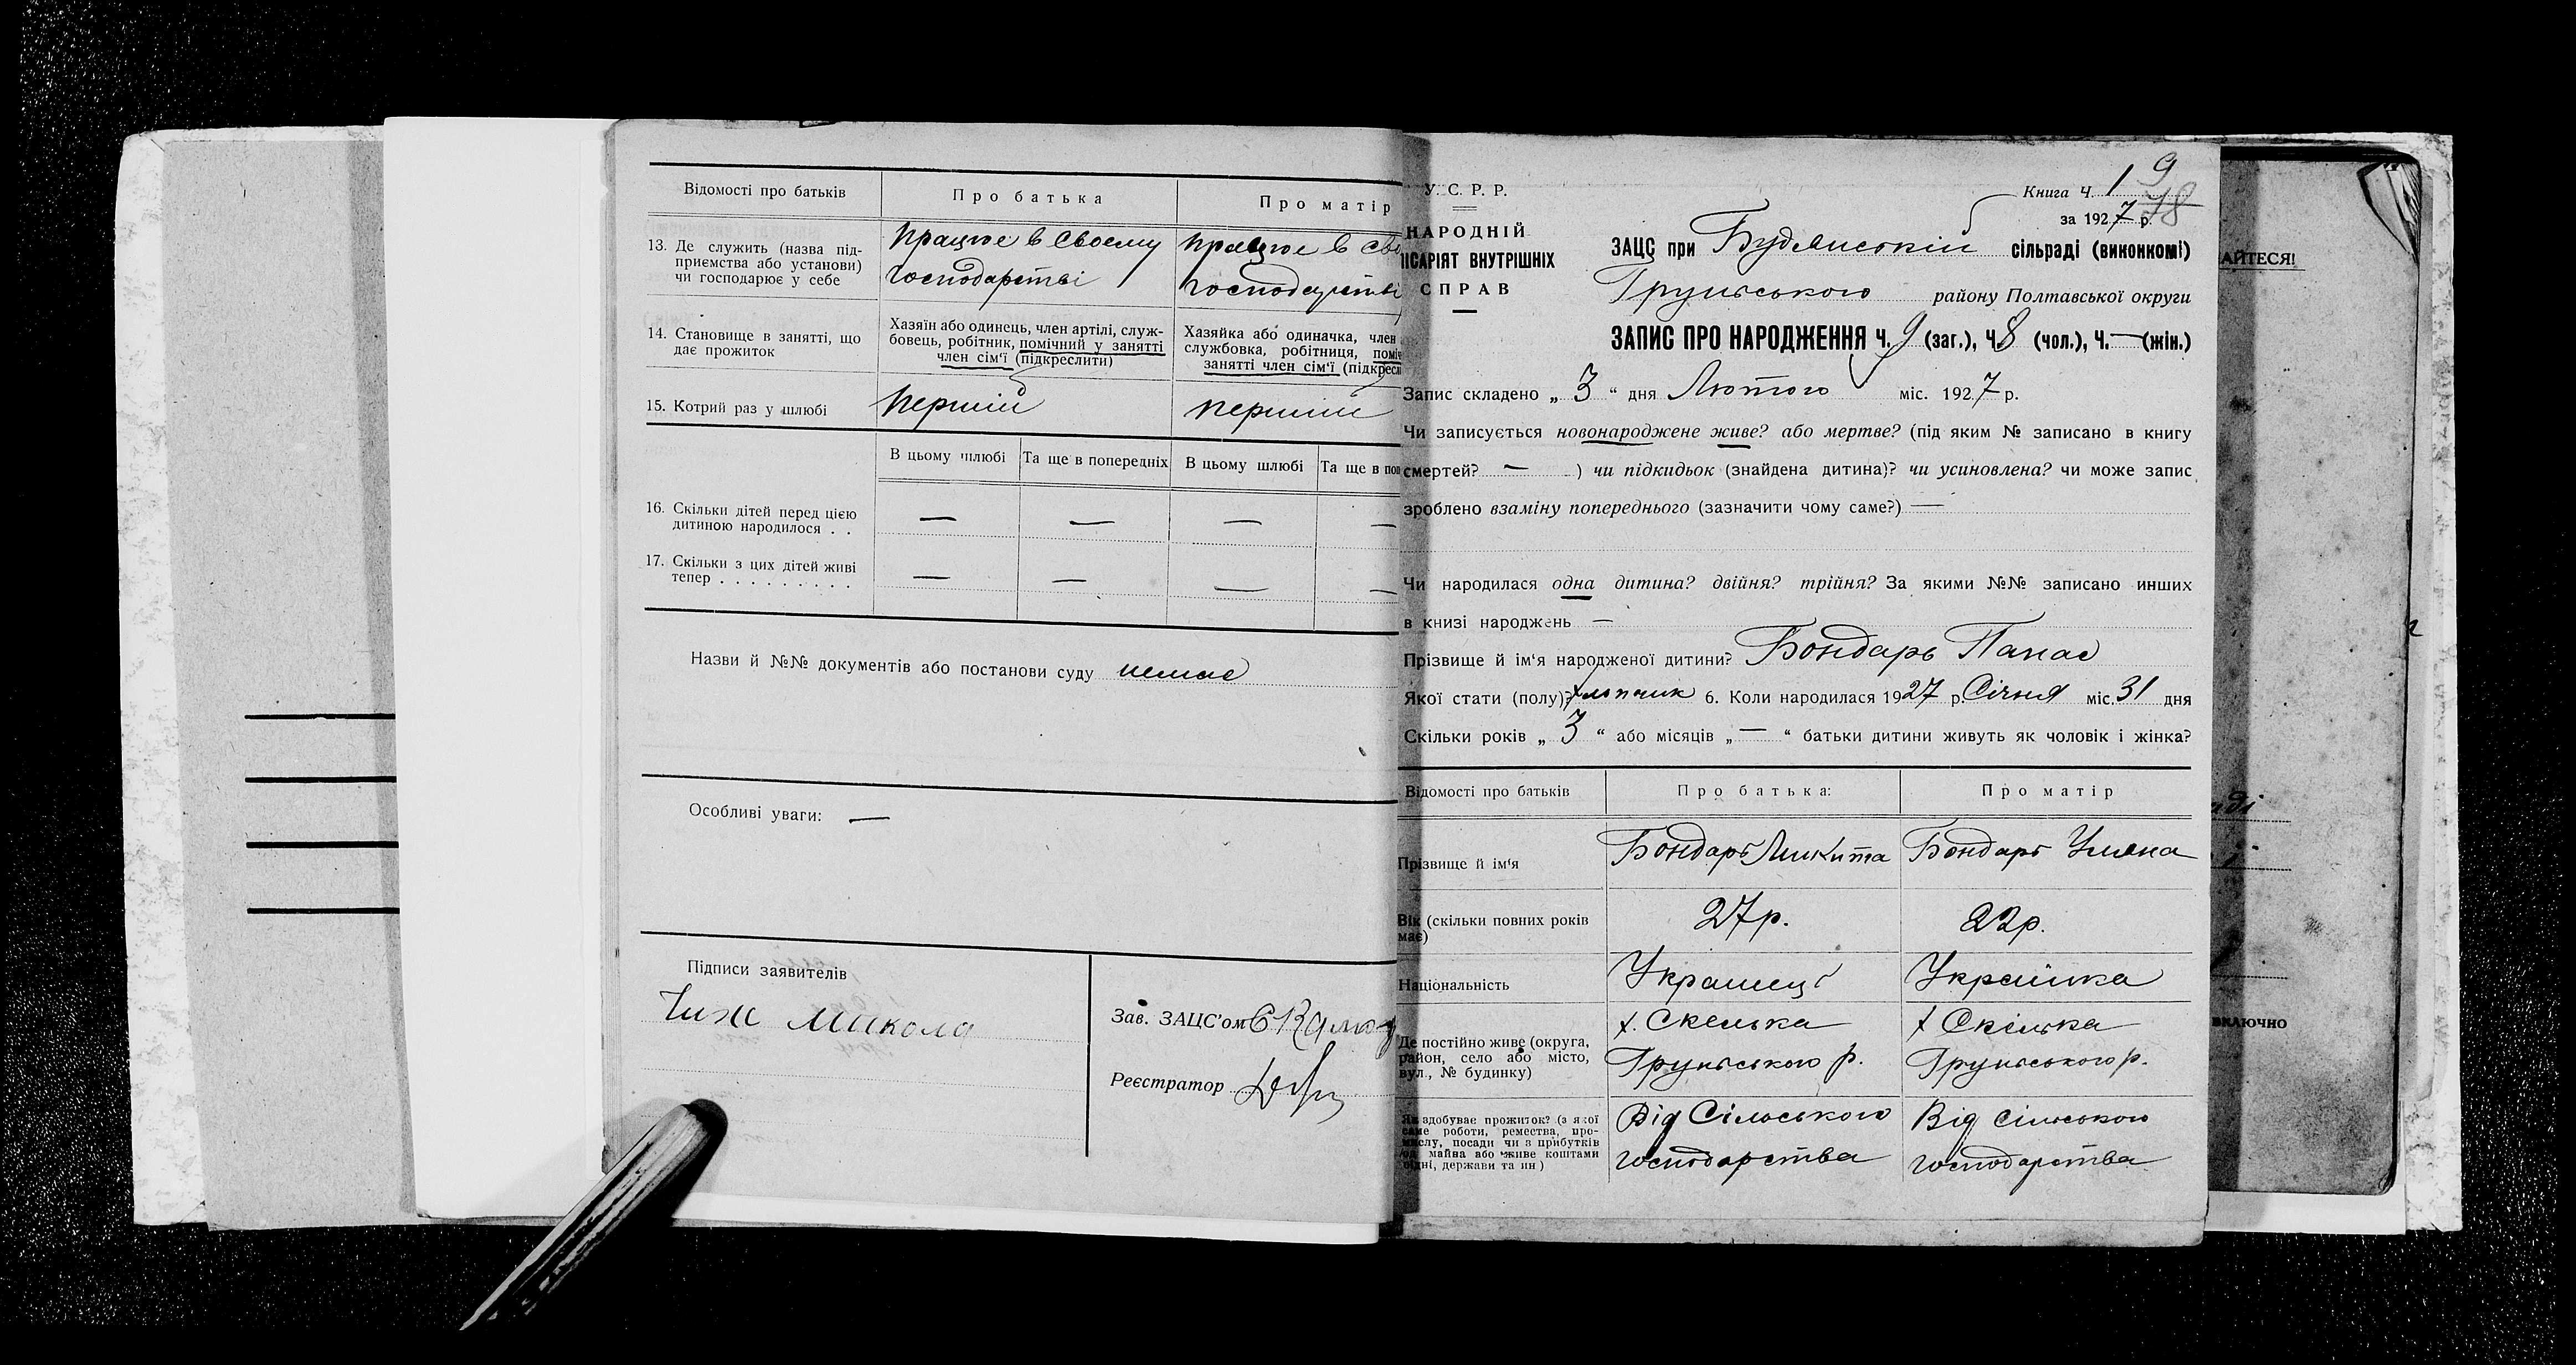 Відомості про батьків
Про батька
Про матір
13. Де служить (назва під-
приємства або установи)
чи господарює у себе
працює в своему
господарстві
працює в сво
господарстві
14. Становище в занятті, що
дає прожиток
Хазяїн або одинець, член артілі, служ-
бовець, робітник, помічний у занятті
член сім'ї (підкреслити)
Хазяйка або одиначка, член
службовка, робітниця, поміч
занятті член сім'ї (підкресл
15. Котрий раз у шлюбі
перший
перший
В цьому шлюбі
Та ще в попередніх
В цьому шлюбі
Та ще в поп
16. Скільки дітей перед цією
дитиною народилося . .
— — — —
17. Скільки з цих дітей живі
тепер . . . . . . . . .
— — — —
Назви й №№ документів або постанови суду немає
Особливі уваги: —
Підписи заявителів
Чиж Микола
Зав. ЗАЦС'ом
Реєстратор
У. С. Р. Р.
НАРОДНІЙ
ІСАРІЯТ ВНУТРІШНІХ
СПРАВ
9
Книга Ч. 1 78
за 1927 р.
ЗАЦС при Будянській сільраді (виконкомі)
Груньського району Полтавської округи
ЗАПИС ПРО НАРОДЖЕННЯ Ч. 9 (заг.), Ч. 8 (чол.), Ч. — (жін.)
Запис складено „ 3 “ дня Лютого міс. 1927 р.
Чи записується новонароджене живе? або мертве? (під яким № записано в книгу
смертей? — ) чи підкидьок (знайдена дитина)? чи усиновлена? чи може запис
зроблено взаміну попереднього (зазначити чому саме?) —
Чи народилася одна дитина? двійня? трійня? За якими №№ записано инших
в книзі народжень —
Прізвище й ім'я народженої дитини? Бондарь Панас
Якої стати (полу)? хлопчик 6. Коли народилася 1927 р. Січня міс. 31 дня
Скільки років „ 3 “ або місяців „ — “ батьки дитини живуть як чоловік і жінка?
Відомості про батьків
Про батька:
Про матір
Прізвище й ім'я
Бондарь Микита
Бондарь Уляна
Вік (скільки повних років
має)
27р.
22р.
Національність
Украінець
Украінка
Де постійно живе (округа,
район, село або місто,
вул., № будинку)
х. Скелька
Груньського р.
х Скелька
Груньського р.
Як здобуває прожиток? (з якої
саме роботи, ремества, про-
мислу, посади чи з прибутків
од майна або живе коштами
рідні, держави та ин)
Від Сільського
господарства
Від сільського
господарства
АЙТЕСЯ!
 включно